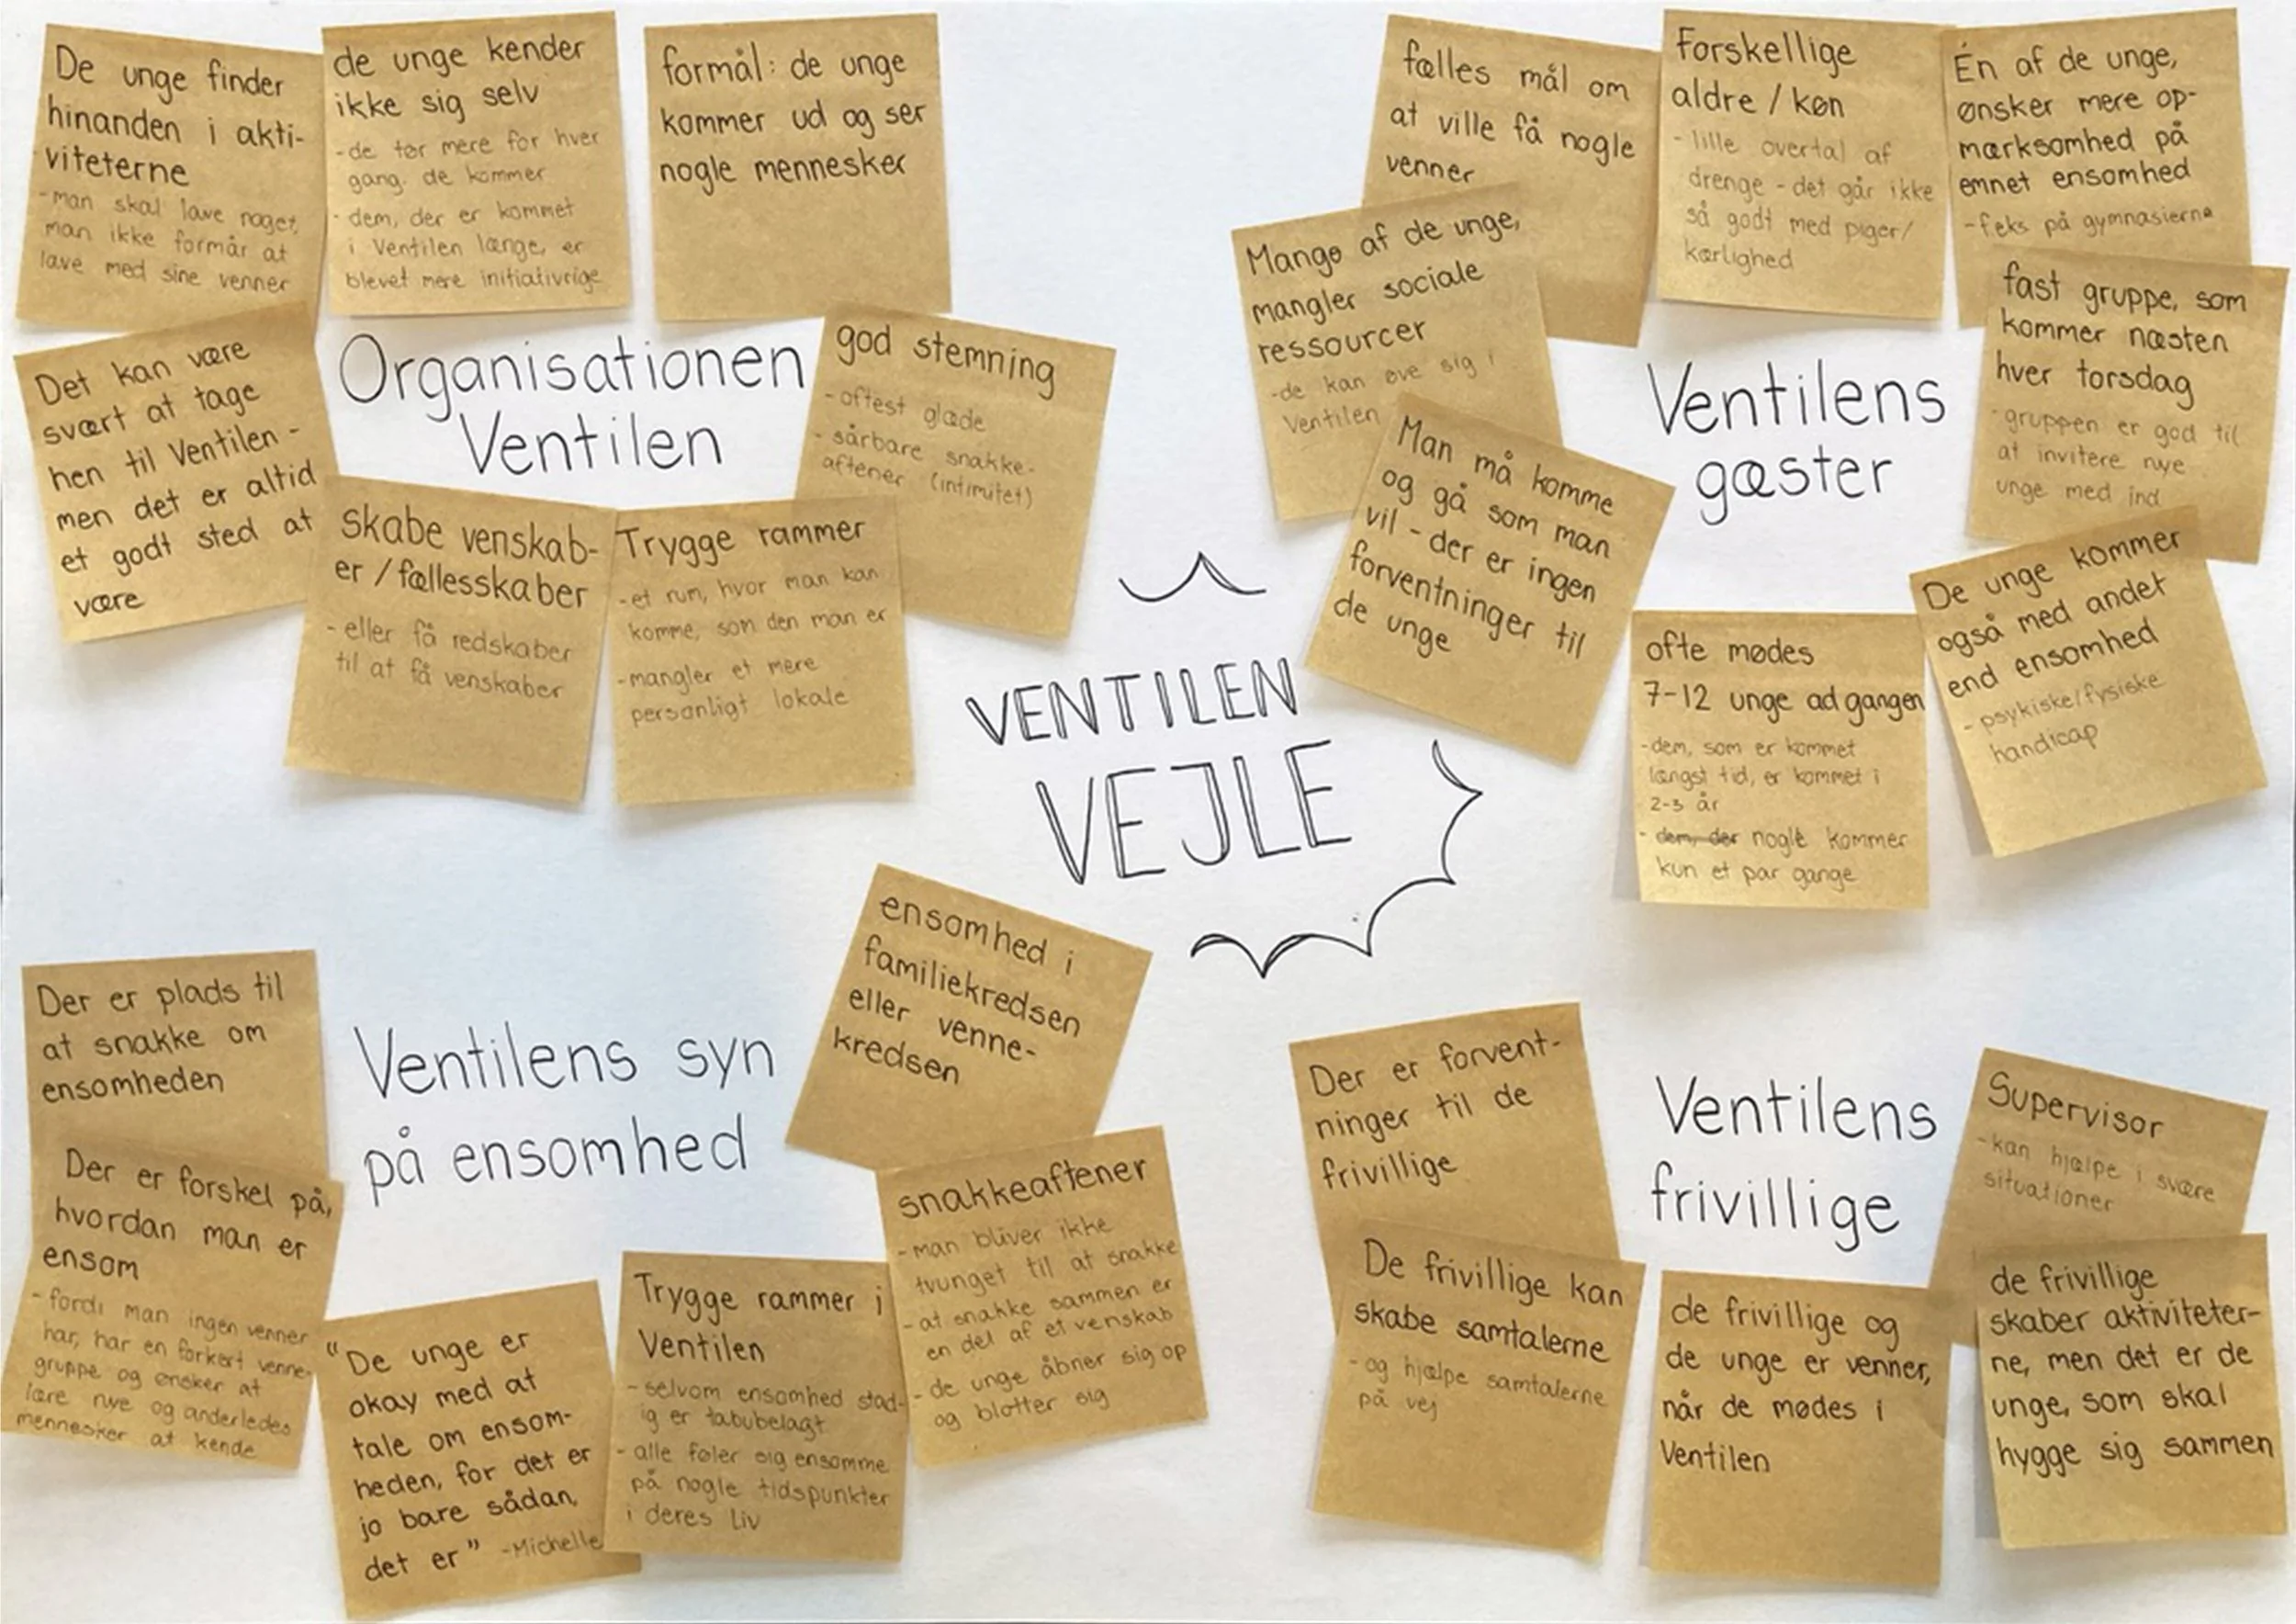 De unge finder
hinanden i akti-
viteterne
- man skal lave noget,
man ikke formår at
lave med sine venner
de unge kender
ikke sig selv
- de tør mere for hver
gang de kommer
- dem, der er kommet
i Ventilen længe, er
blevet mere initiativrige
formål: de unge
kommer ud og ser
nogle mennesker
Det kan være
svært at tage
hen til Ventilen -
men det er altid
et godt sted at
være
Organisationen
Ventilen
god stemning
- oftest glæde
- sårbare snakke-
aftener (intimitet)
skabe venskab-
er / fællesskaber
- eller få redskaber
til at få venskaber
Trygge rammer
- et rum, hvor man kan
komme, som den man er
- mangler et mere
personligt lokale
fælles mål om
at ville få nogle
venner
Forskellige
aldre / køn
- lille overtal af
drenge - det går ikke
så godt med piger/
kærlighed
Én af de unge,
ønsker mere op-
mærksomhed på
emnet ensomhed
- f.eks på gymnasierne
Mange af de unge,
mangler sociale
ressourcer
- de kan øve sig i
Ventilen
Ventilens
gæster
fast gruppe, som
kommer næsten
hver torsdag
- gruppen er god til
at invitere nye
unge med ind
Man må komme
og gå som man
vil - der er ingen
forventninger til
de unge
ofte mødes
7-12 unge ad gangen
- dem, som er kommet
længst tid, er kommet i
2-3 år
- dem, der nogle kommer
kun et par gange
De unge kommer
også med andet
end ensomhed
- psykiske/fysiske
handicap
VENTILEN
VEJLE
Der er plads til
at snakke om
ensomheden
Der er forskel på,
hvordan man er
ensom
- fordi man ingen venner
har, har en forkert venne-
gruppe og ønsker at
lære nye og anderledes
mennesker at kende
Ventilens syn
på ensomhed
ensomhed i
familiekredsen
eller venne-
kredsen
"De unge er
okay med at
tale om ensom-
heden, for det er
jo bare sådan,
det er" - Michelle
Trygge rammer i
Ventilen
- selvom ensomhed stad-
ig er tabubelagt
- alle føler sig ensomme
på nogle tidspunkter
i deres liv
snakkeaftener
- man bliver ikke
tvunget til at snakke
- at snakke sammen er
en del af et venskab
- de unge åbner sig op
og blotter sig
Der er forvent-
ninger til de
frivillige
Ventilens
frivillige
Supervisor
- kan hjælpe i svære
situationer
De frivillige kan
skabe samtalerne
- og hjælpe samtalerne
på vej
de frivillige og
de unge er venner,
når de mødes i
Ventilen
de frivillige
skaber aktiviteter-
ne, men det er de
unge, som skal
hygge sig sammen